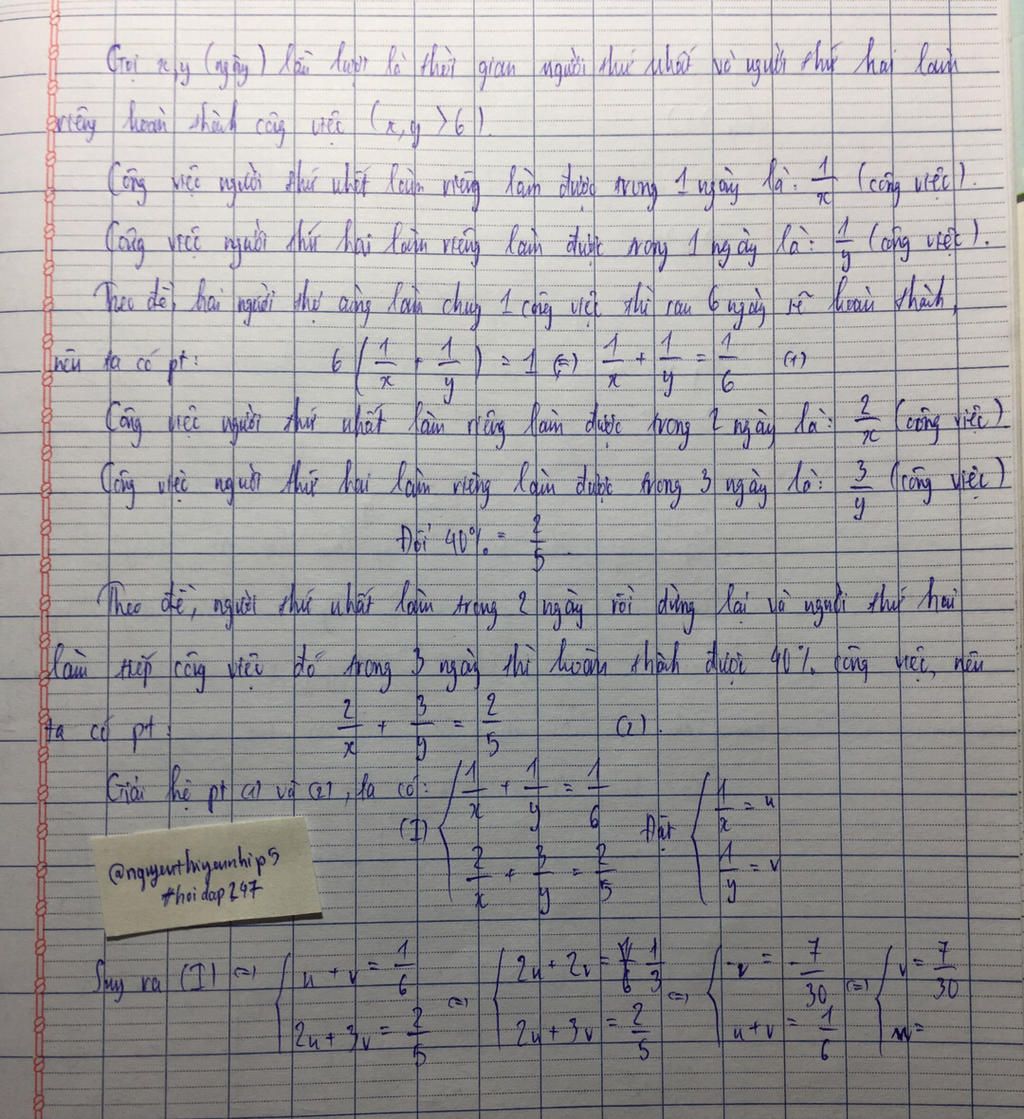 Gọi x, y (ngày) lần lượt là thời gian người thứ nhất và người thứ hai làm
riêng hoàn thành công việc (x, y > 6).
Công việc người thứ nhất làm riêng làm được trong 1 ngày là: 1/x (công việc).
Công việc người thứ hai làm riêng làm được trong 1 ngày là: 1/y (công việc).
Theo đề, hai người thợ cùng làm chung 1 công việc thì sau 6 ngày sẽ hoàn thành,
nên ta có pt: 6 (1/x + 1/y) = 1 (=) 1/x + 1/y = 1/6 (1)
Công việc người thứ nhất làm riêng làm được trong 2 ngày là: 2/x (công việc)
Công việc người thứ hai làm riêng làm được trong 3 ngày là: 3/y (công việc)
Đổi 40% = 2/5
Theo đề, người thứ nhất làm trong 2 ngày rồi dừng lại và người thứ hai
làm tiếp công việc đó trong 3 ngày thì hoàn thành được 40% công việc, nên
ta có pt: 2/x + 3/y = 2/5 (2).
Giải hệ pt (1) và (2), ta có: (I) { 1/x + 1/y = 1/6 ; 2/x + 3/y = 2/5 Đặt { 1/x = u ; 1/y = v
@nguyenthiyennhip5
#hoidap247
Suy ra (I) (=) { u + v = 1/6 ; 2u + 3v = 2/5 (=) { 2u + 2v = 1/3 ; 2u + 3v = 2/5 (=) { -v = -7/30 ; u + v = 1/6 (=) { v = 7/30 ; u =